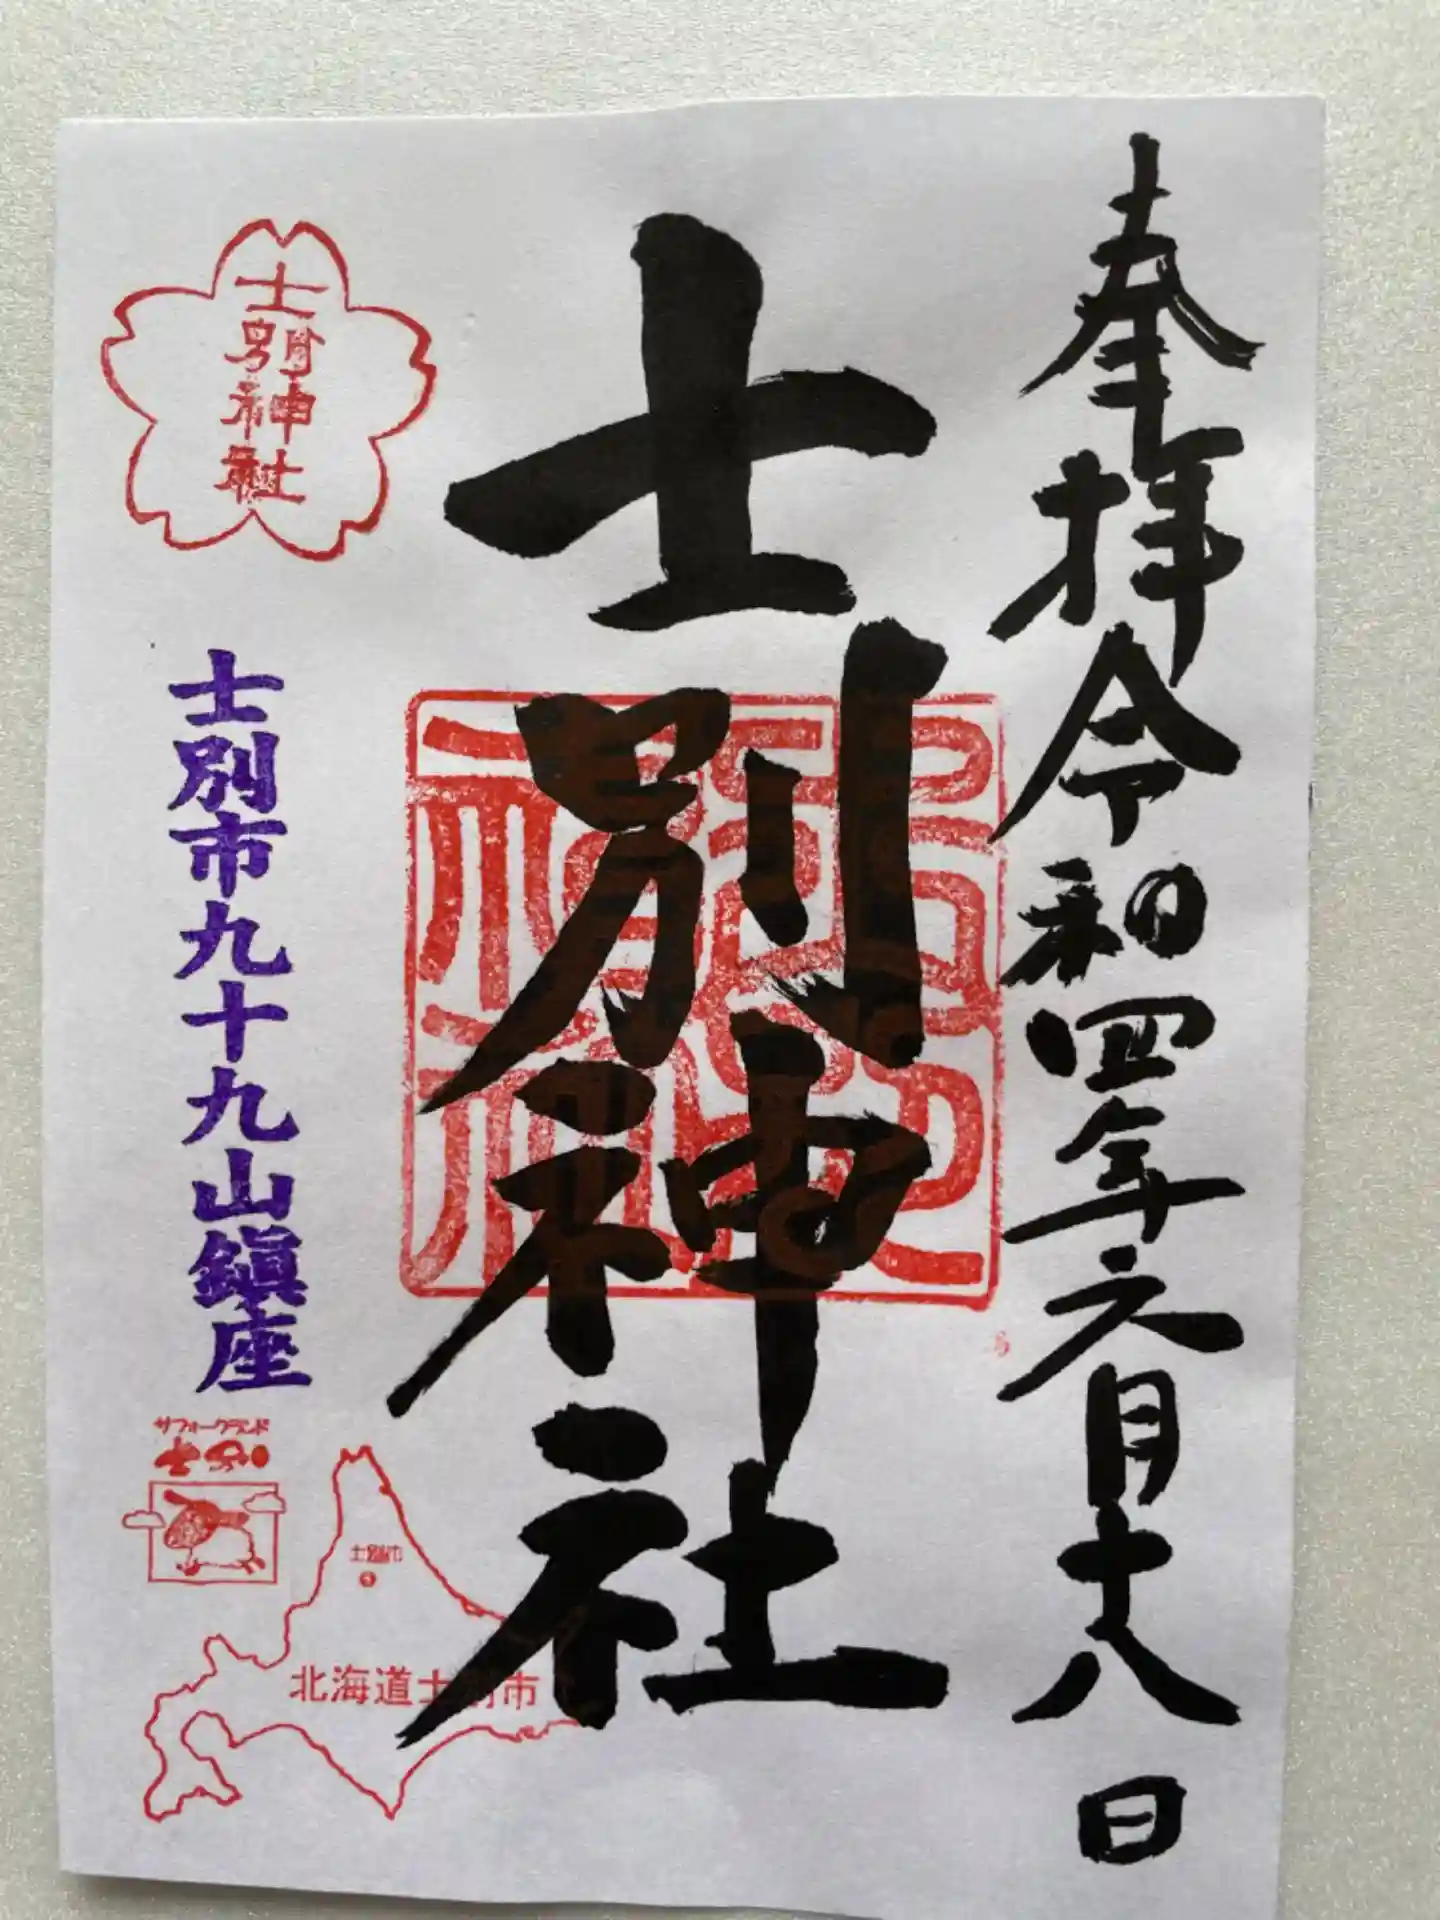 奉拝令和四年六月十八日
士別神社
士別神社
士別市九十九山鎮座
サフォークランド
士別
士別市
北海道士別市